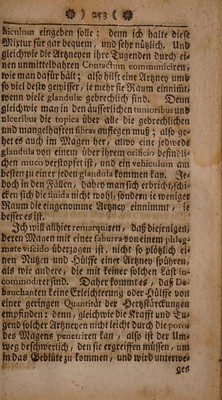 ) 253 (
hiculum eingeben solle: denn ich halte diese
Mixtur für gar bequem, und sehr nützlich. Und
gleichwie die Artzneyen ihre Tugenden durch ei-
nen unmittelbahren Contactum communiciren,
wie man dafür hält; also hilft eine Artzney umb
so viel desto gewisser, ie mehr sie Raum einnimt,
wenn viele glandulæ gebrechlich sind. Denn
gleichwie man in den äusserlichen tumoribus und
ulceribus die topica über alle die gebrechlichen
und mangelhafften fibras aufflegen muß; also ge-
hets auch im Magen her, alwo eine jedwede
glandula von einem über ihrem orificio befindli-
chen muco verstopfet ist, und ein vehiculum am
besten zu einer jeden glandula kommen kan. Je-
doch in den Fällen, da
sen sich die fluida nicht wohl, sondern ie weniger
Raum die eingenomme Artzney einnimmt, ie
besser es ist.
Ich will alhier remarquiren, daß diejenigen,
deren Magen mit einer saburra von einem phleg-
mate viscido überzogen ist, nicht so plötzlich ei-
nen Nutzen und Hülffe einer Artzney spühren,
als wie andere, die mit keiner solchen Last in-
commodiret sind. Daher kommt es, daß De-
bauchanten keine Erleichterung oder Hülffe von
einer geringen Quantität der Hertzstärckungen
empfinden: denn, gleichwie die Krafft und Tu-
gend solcher Artzneyen nicht leicht durch die poros
des Magens penetriren kan, also ist der Um-
weg beschwerlich, den sie ergreiffen müssen, um
in das Geblüte zu kommen, und wird unterwe-
ges